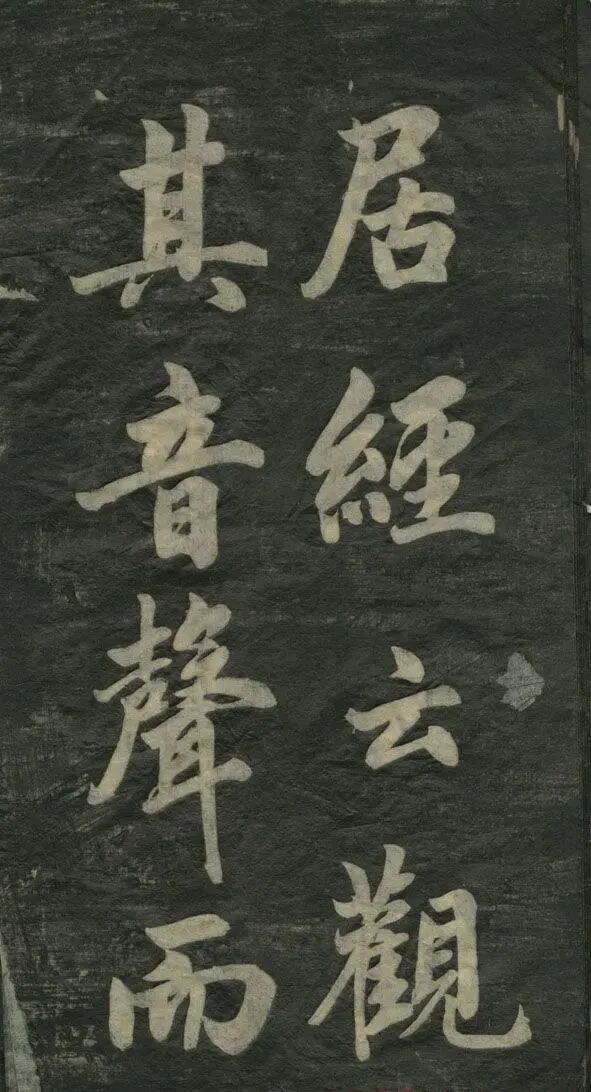 居經云觀
其音聲而